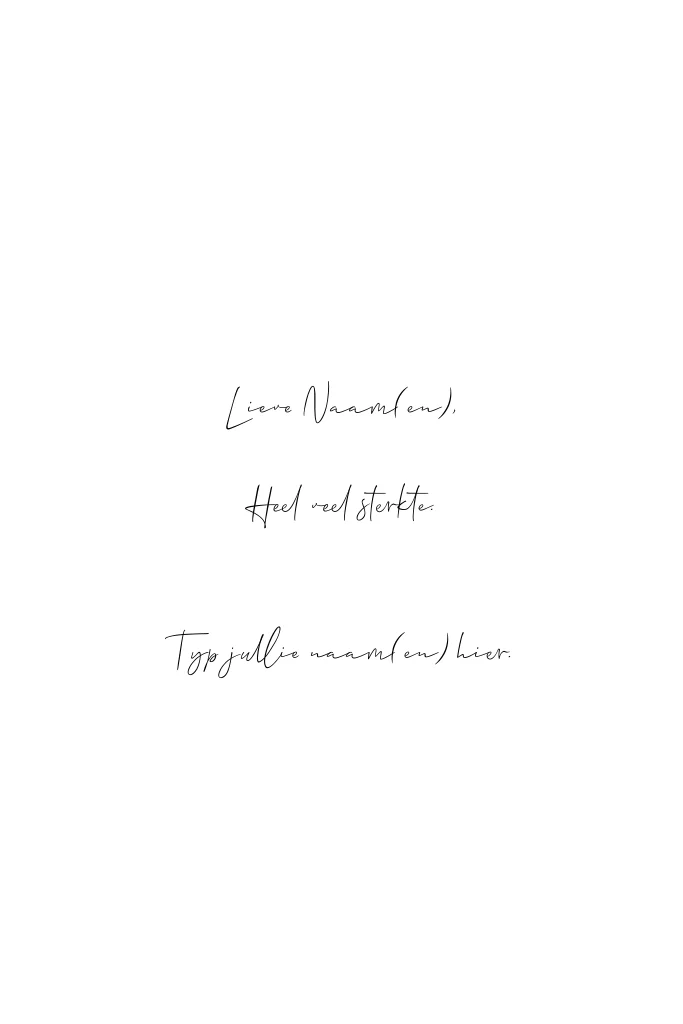 Lieve Naam(en),
Heel veel sterkte.
Typ jullie naam(en) hier.